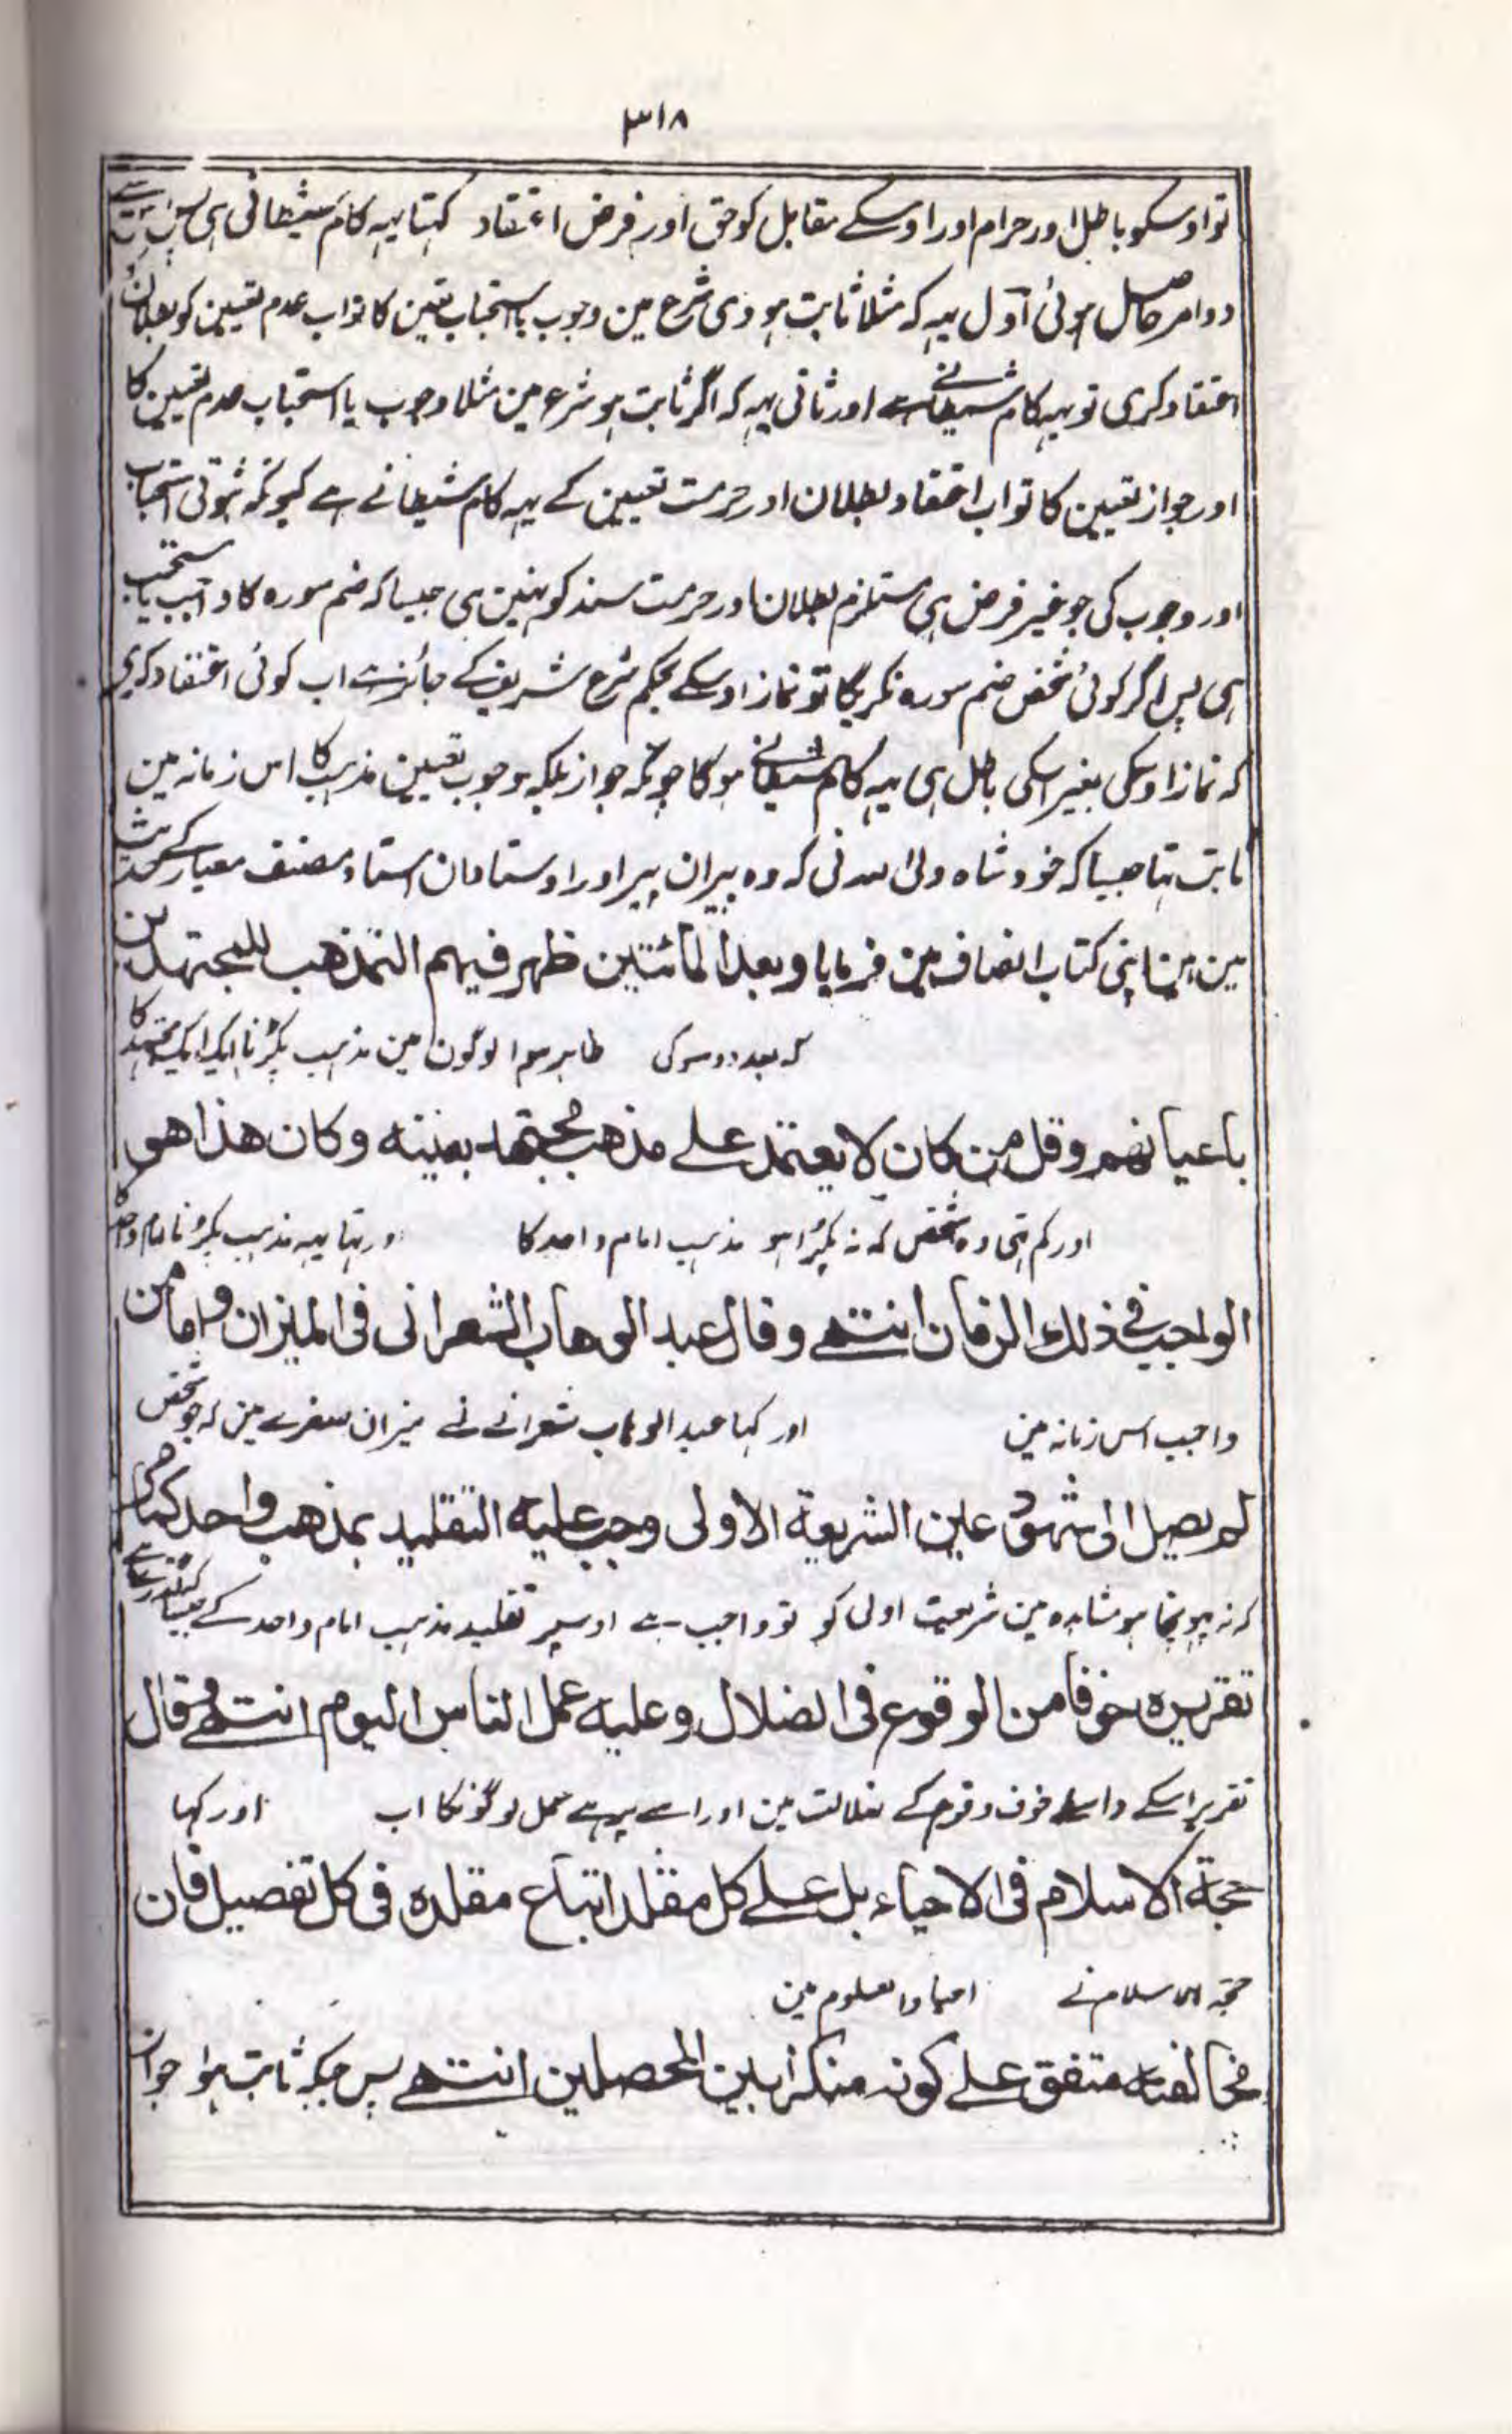 ٣١٨
تو اوسکو باطل اور حرام اور اوسکے مقابل کو حق اور فرض اعتقاد کہتا یہہ کام شیطانی ہی پس
دو امر حاصل ہوئی اول یہہ کہ مثلا ثابت ہودی شرع مین وجوب یا استحباب تعین کا تو اب عدم تعیین کو بطلان
اعتقاد کری تو یہہ کام شیطانے ہے اور ثانی یہہ کہ اگر ثابت ہو شرع مین مثلا وجوب یا استحباب عدم تعیین کا
اور جواز تعیین کا تو اب اعتقاد بطلان اور حرمت تعیین کے یہہ کام شیطانے ہے کیونکہ ثبوتی استحباب
اور وجوب کی جو غیر فرض ہی مستلزم بطلان اور حرمت سند کو نہین ہی جیسا کہ ضم سورہ کا واجب یا مستحب
ہی پس اگر کوئی شخص ضم سورہ نکریگا تو نماز اوسکے بحکم شرع شریف کے جائز ہے اب کوئی اعتقاد کری
کہ نماز اوسکی بغیر اسکی باطل ہی یہہ کام شیطانے ہوگا چونکہ جواز بلکہ وجوب تعیین مذہب کا اس زمانہ مین
ثابت تہا جیسا کہ خود شاہ ولی اللہ نی کہ وہ پیران پیر اور اوستادان استاد مصنف معیار کے حدیث
مین ہین اپنی کتاب انصاف مین فرمایا وبعد المائتین ظهر فيهم التمذهب للمجتهدين
کہ بعد دو سو کی ظاہر ہوا لوگون مین مذہب پکڑنا ایک ایک مجتہد کا
باعيانهم وقل من كان لا يعتمد على مذهب مجتهد بعينه وكان هذا هو
اور کم تہی وہ شخص کہ نہ پکڑا ہو مذہب امام واحد کا اور تہا یہہ مذہب پکڑنا امام واحد کا
الواجب في ذلك الزمان انتهى وقال عبد الوهاب الشعراني في الميزان واما من
واجب اس زمانہ مین اور کہا عبد الوہاب شعرانے نے میزان مین کہ جو شخص
لم يصل الى شهود عين الشريعة الاولى وجب عليه التقليد بمذهب واحد كما مر
کہ نہ پہونچا ہو مشاہدہ مین شریعت اولی کو تو واجب ہے اوسپر تقلید مذہب امام واحد کے جیسا کہ گذری ہے
تقريره خوفا من الوقوع في الضلال وعليه عمل الناس اليوم انتهى وقال
تقریر اسکے واسطے خوف وقوع کے ضلالت مین اور اسے پر ہے عمل لوگونکا اب اور کہا
حجة الاسلام في الاحياء بل على كل مقلد اتباع مقلده في كل تفصيل فان
حجۃ الاسلام نے احیاء العلوم مین
مخالفته متفق على كونه منكرا بين المحصلين انتهى پس جبکہ ثابت ہوا جواز